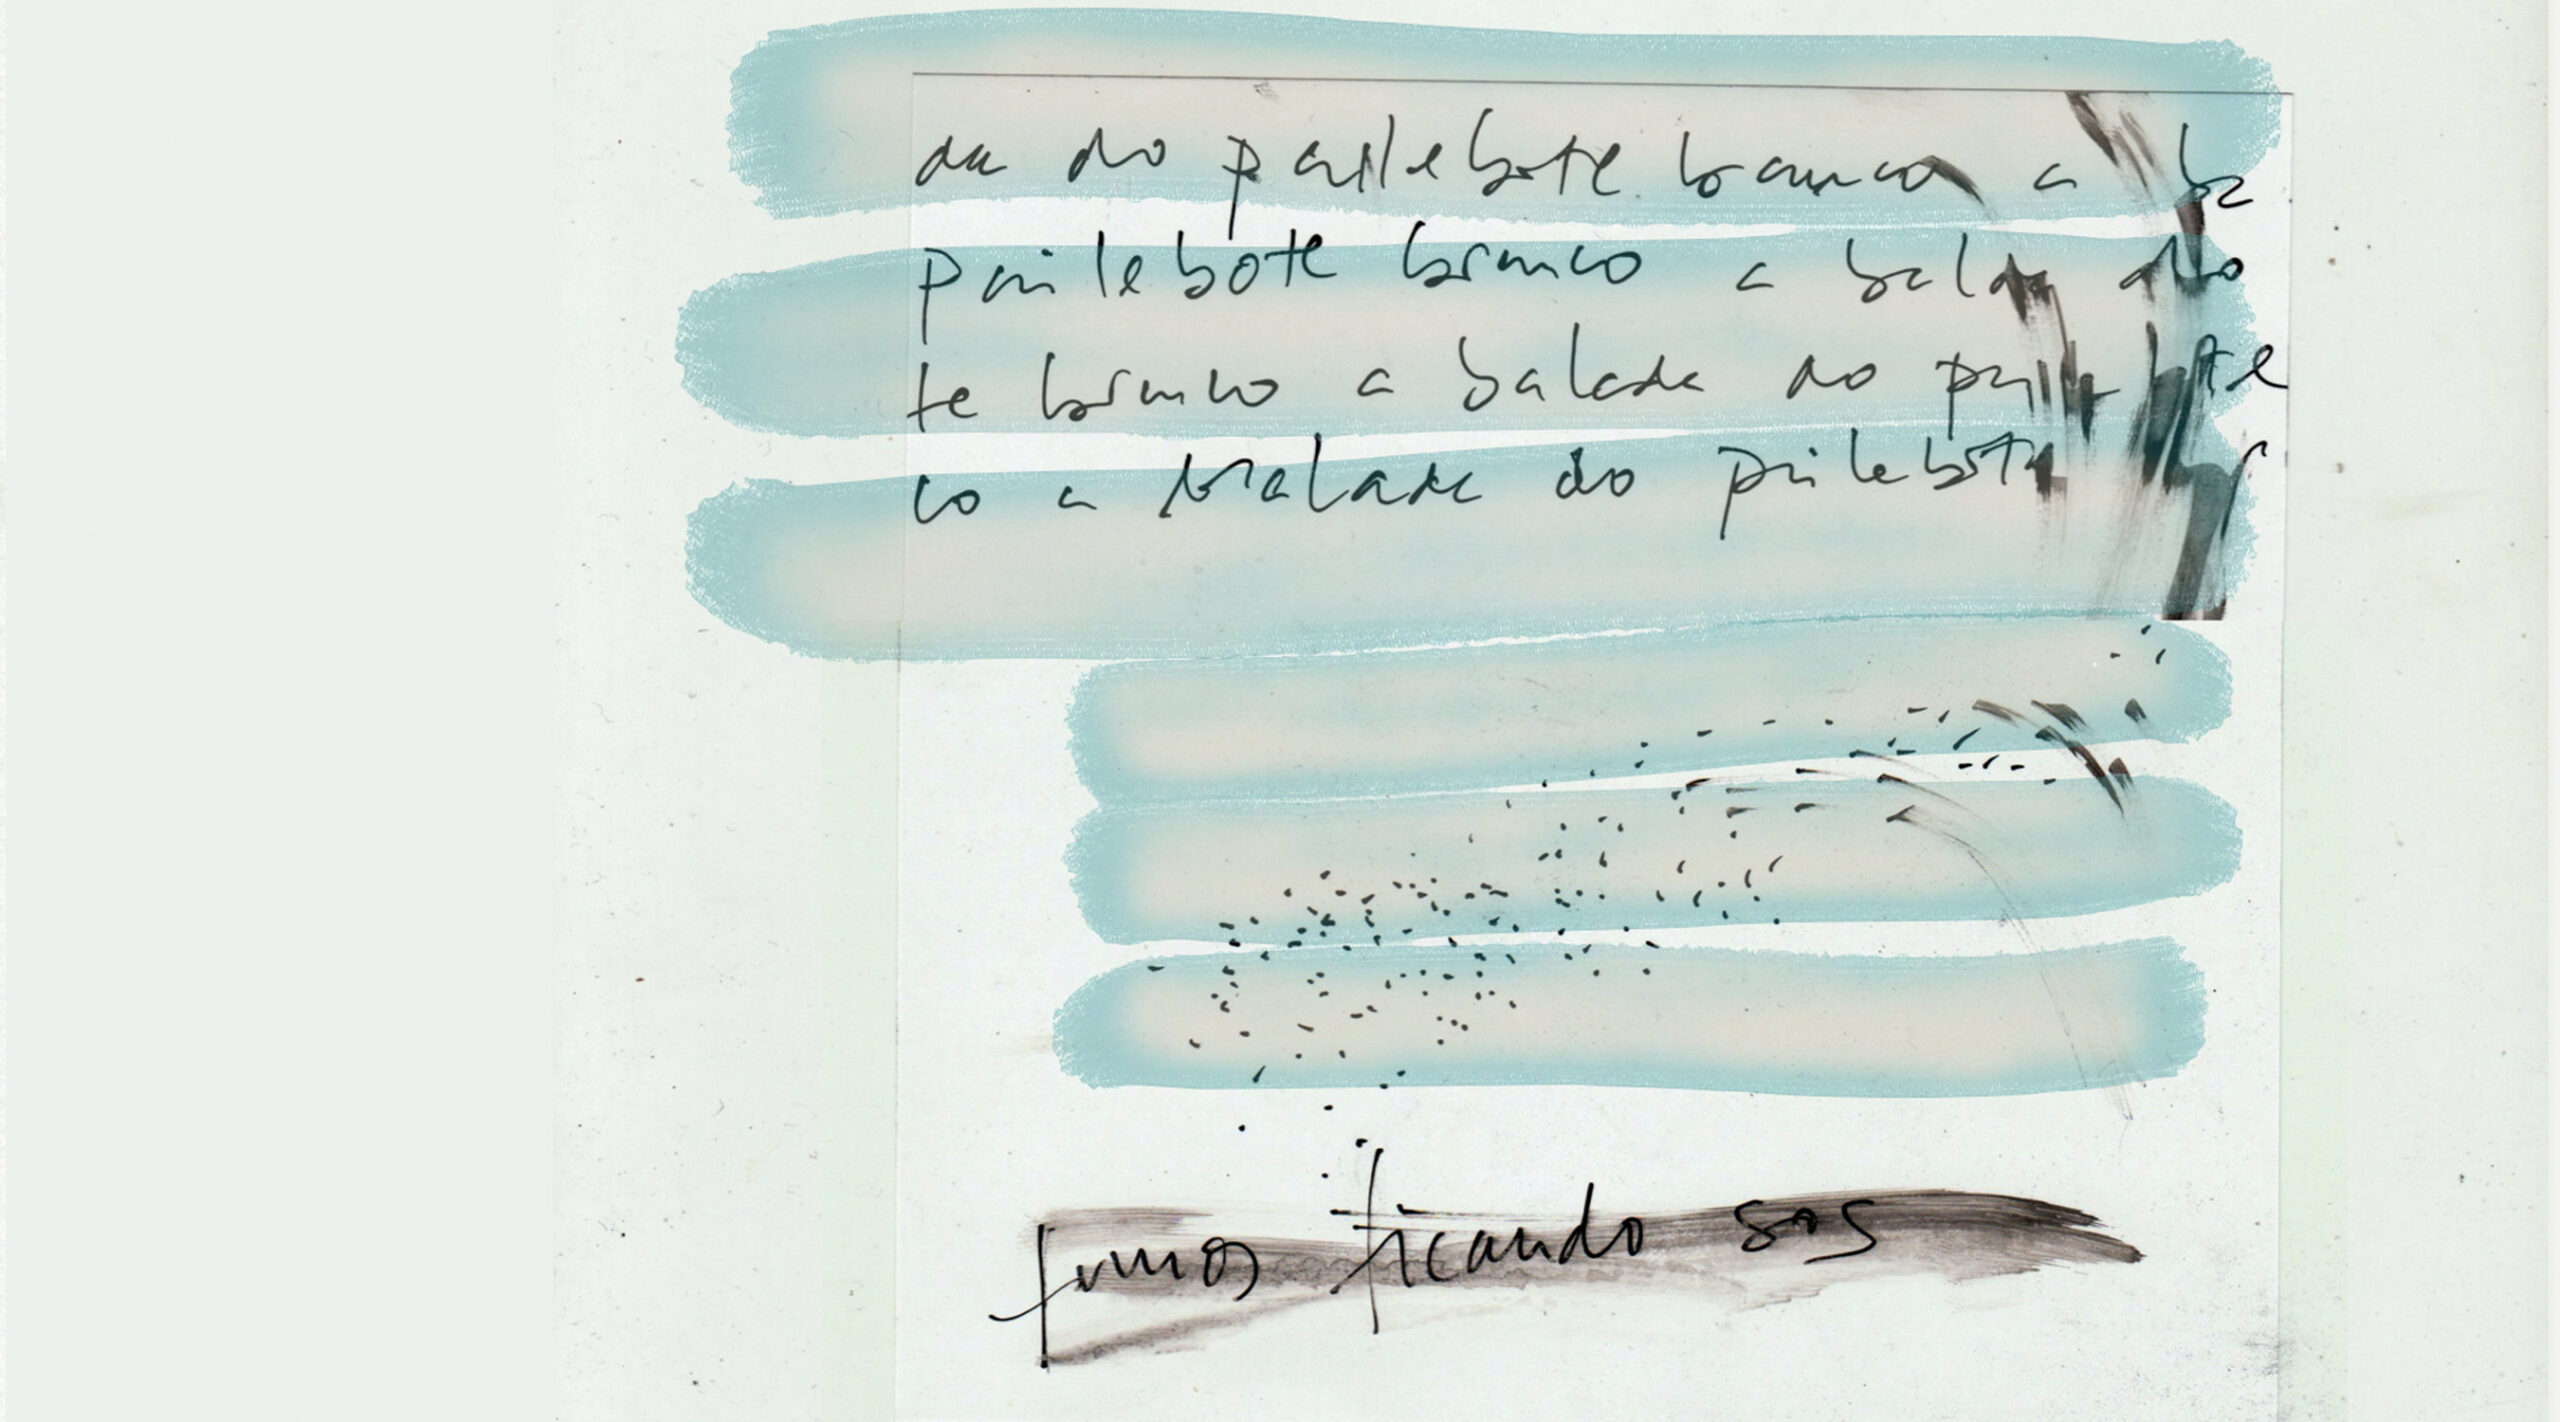 da do pailebote branco a ba
pailebote branco a balada do
te branco a balada do pailebote
co a balada do pailebote
fumos ficando sos